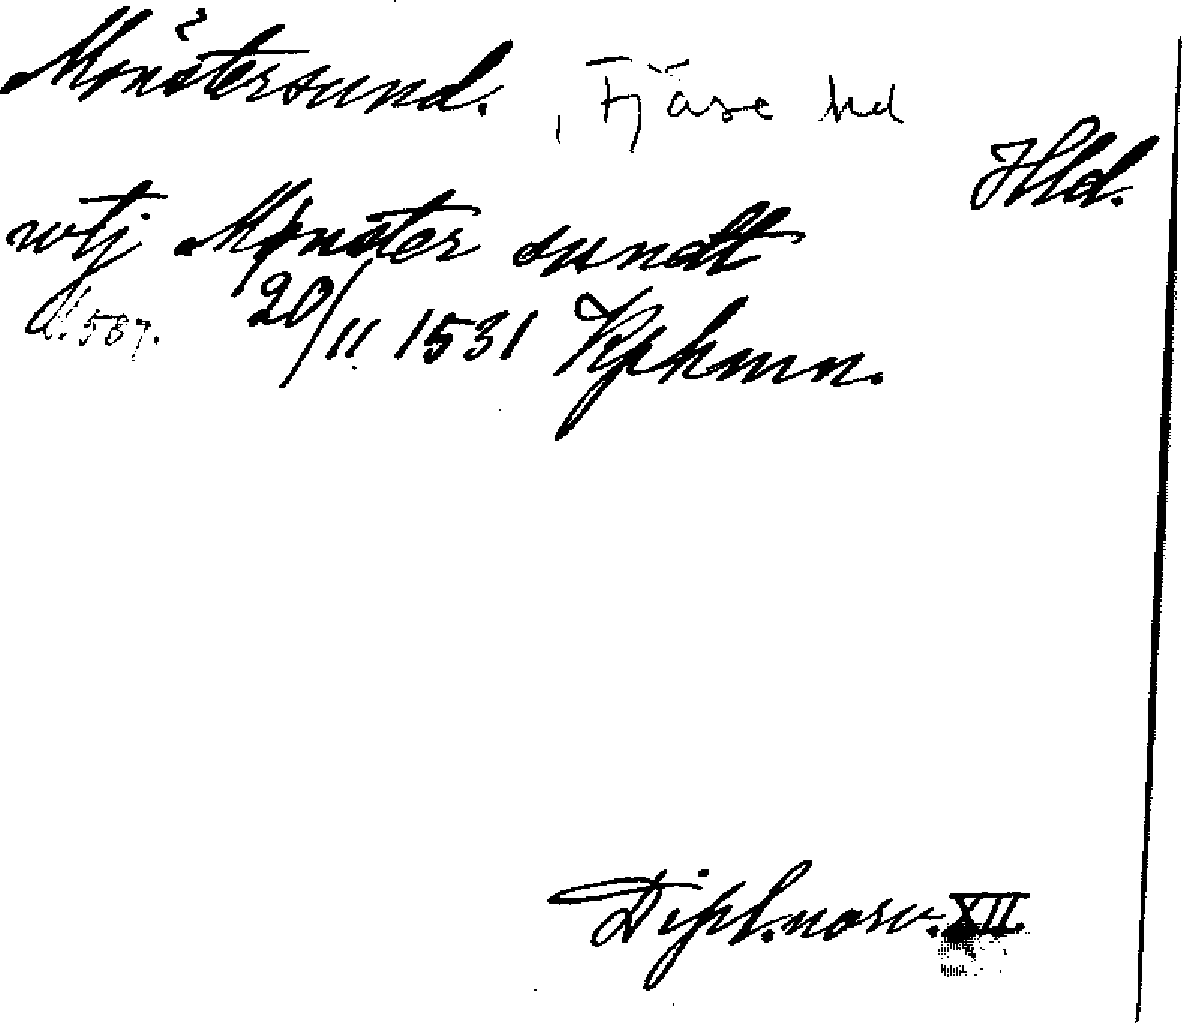 Mönstersund. , Fjäre hd
Hld.
wtj Mønster sundt
s. 587. 20/11 1531 Kphmn.
Dipl. norv. XII.